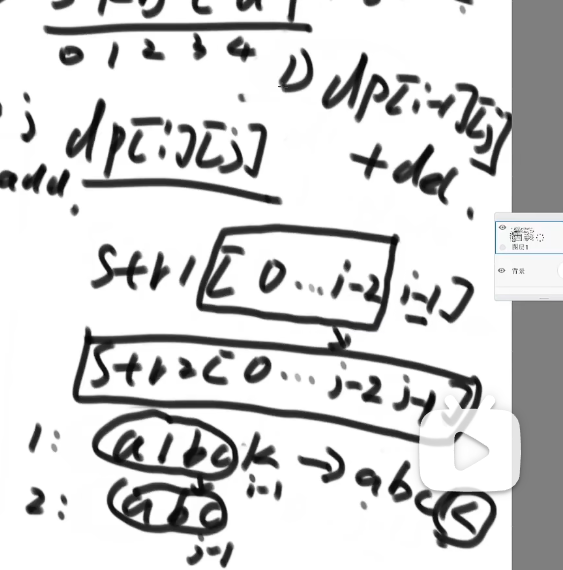 0 1 2 3 4
1) dp[i-1][j]
+ del.
j dp[i][j]
add.
str1[0...i-2 i-1]
str2[0...j-2 j-1]
1: a1bck → abck
i-1
2: abc
j-1
图层1
背景